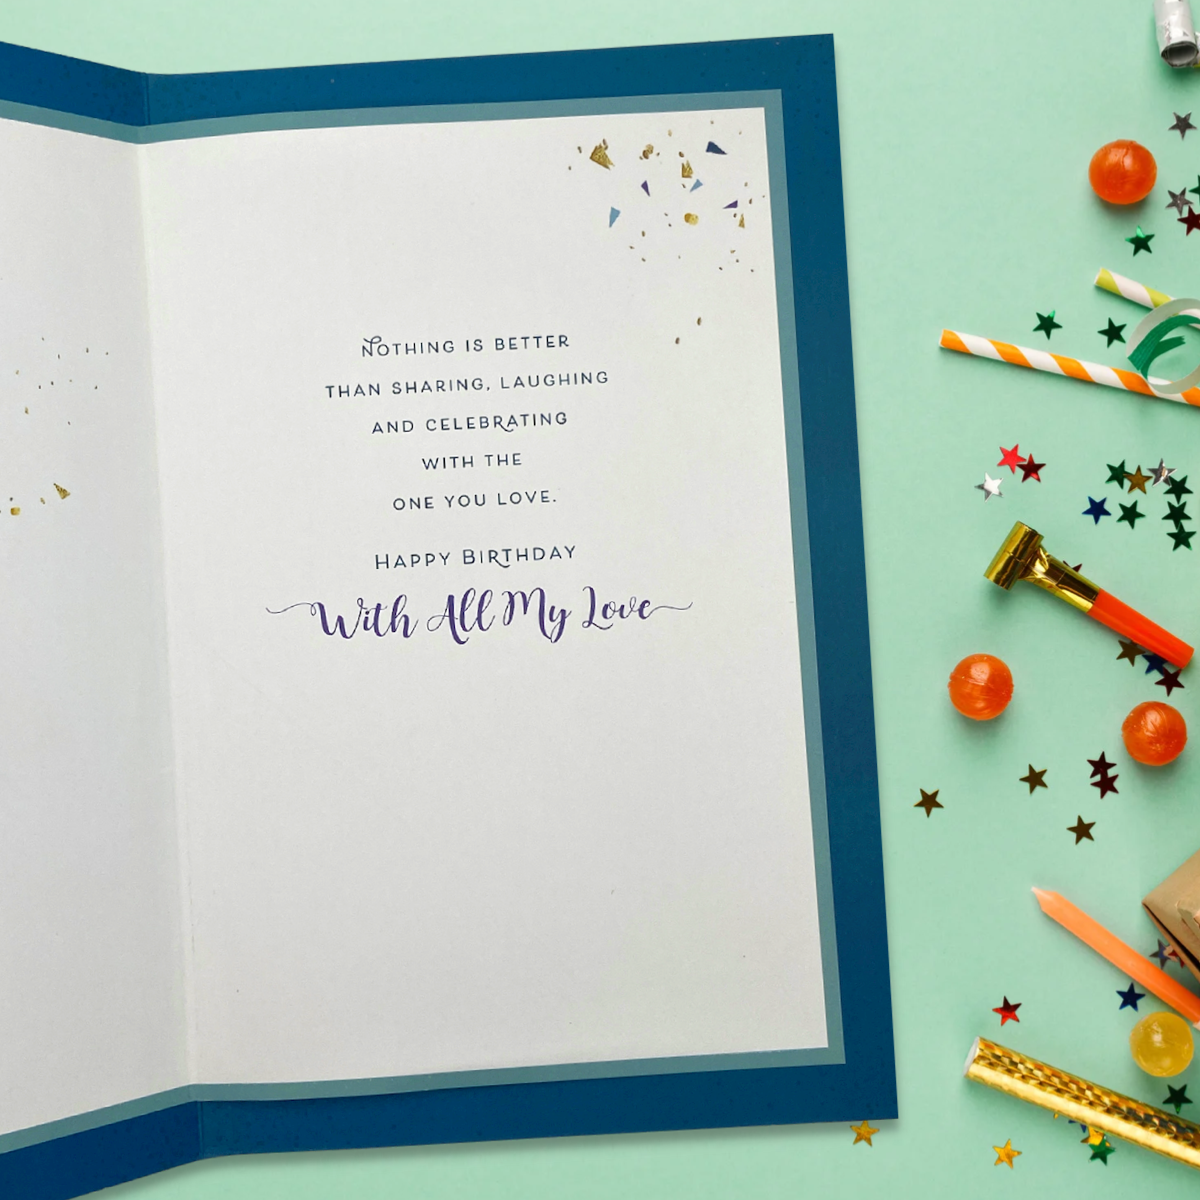 NOTHING IS BETTER
THAN SHARING, LAUGHING
AND CELEBRATING
WITH THE
ONE YOU LOVE.
HAPPY BIRTHDAY
With All My Love